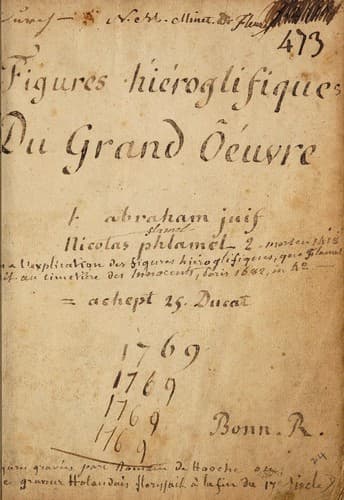 N. &
473
Figures hiéroglifiques
Du Grand Oéuvre
abraham juif
flamel
Nicolas phlamel 2 mort en 1418
a l'explication des figures hiéroglifiques, que flamel
au cimetière des Innocents, paris 1682, in 4o
= achept 25. Ducat
1769
1769
1769
1769
Bonn. R.
24
gravées par Romain de Hooche ou
graveur Holandais florissait à la fin du 17e siècle